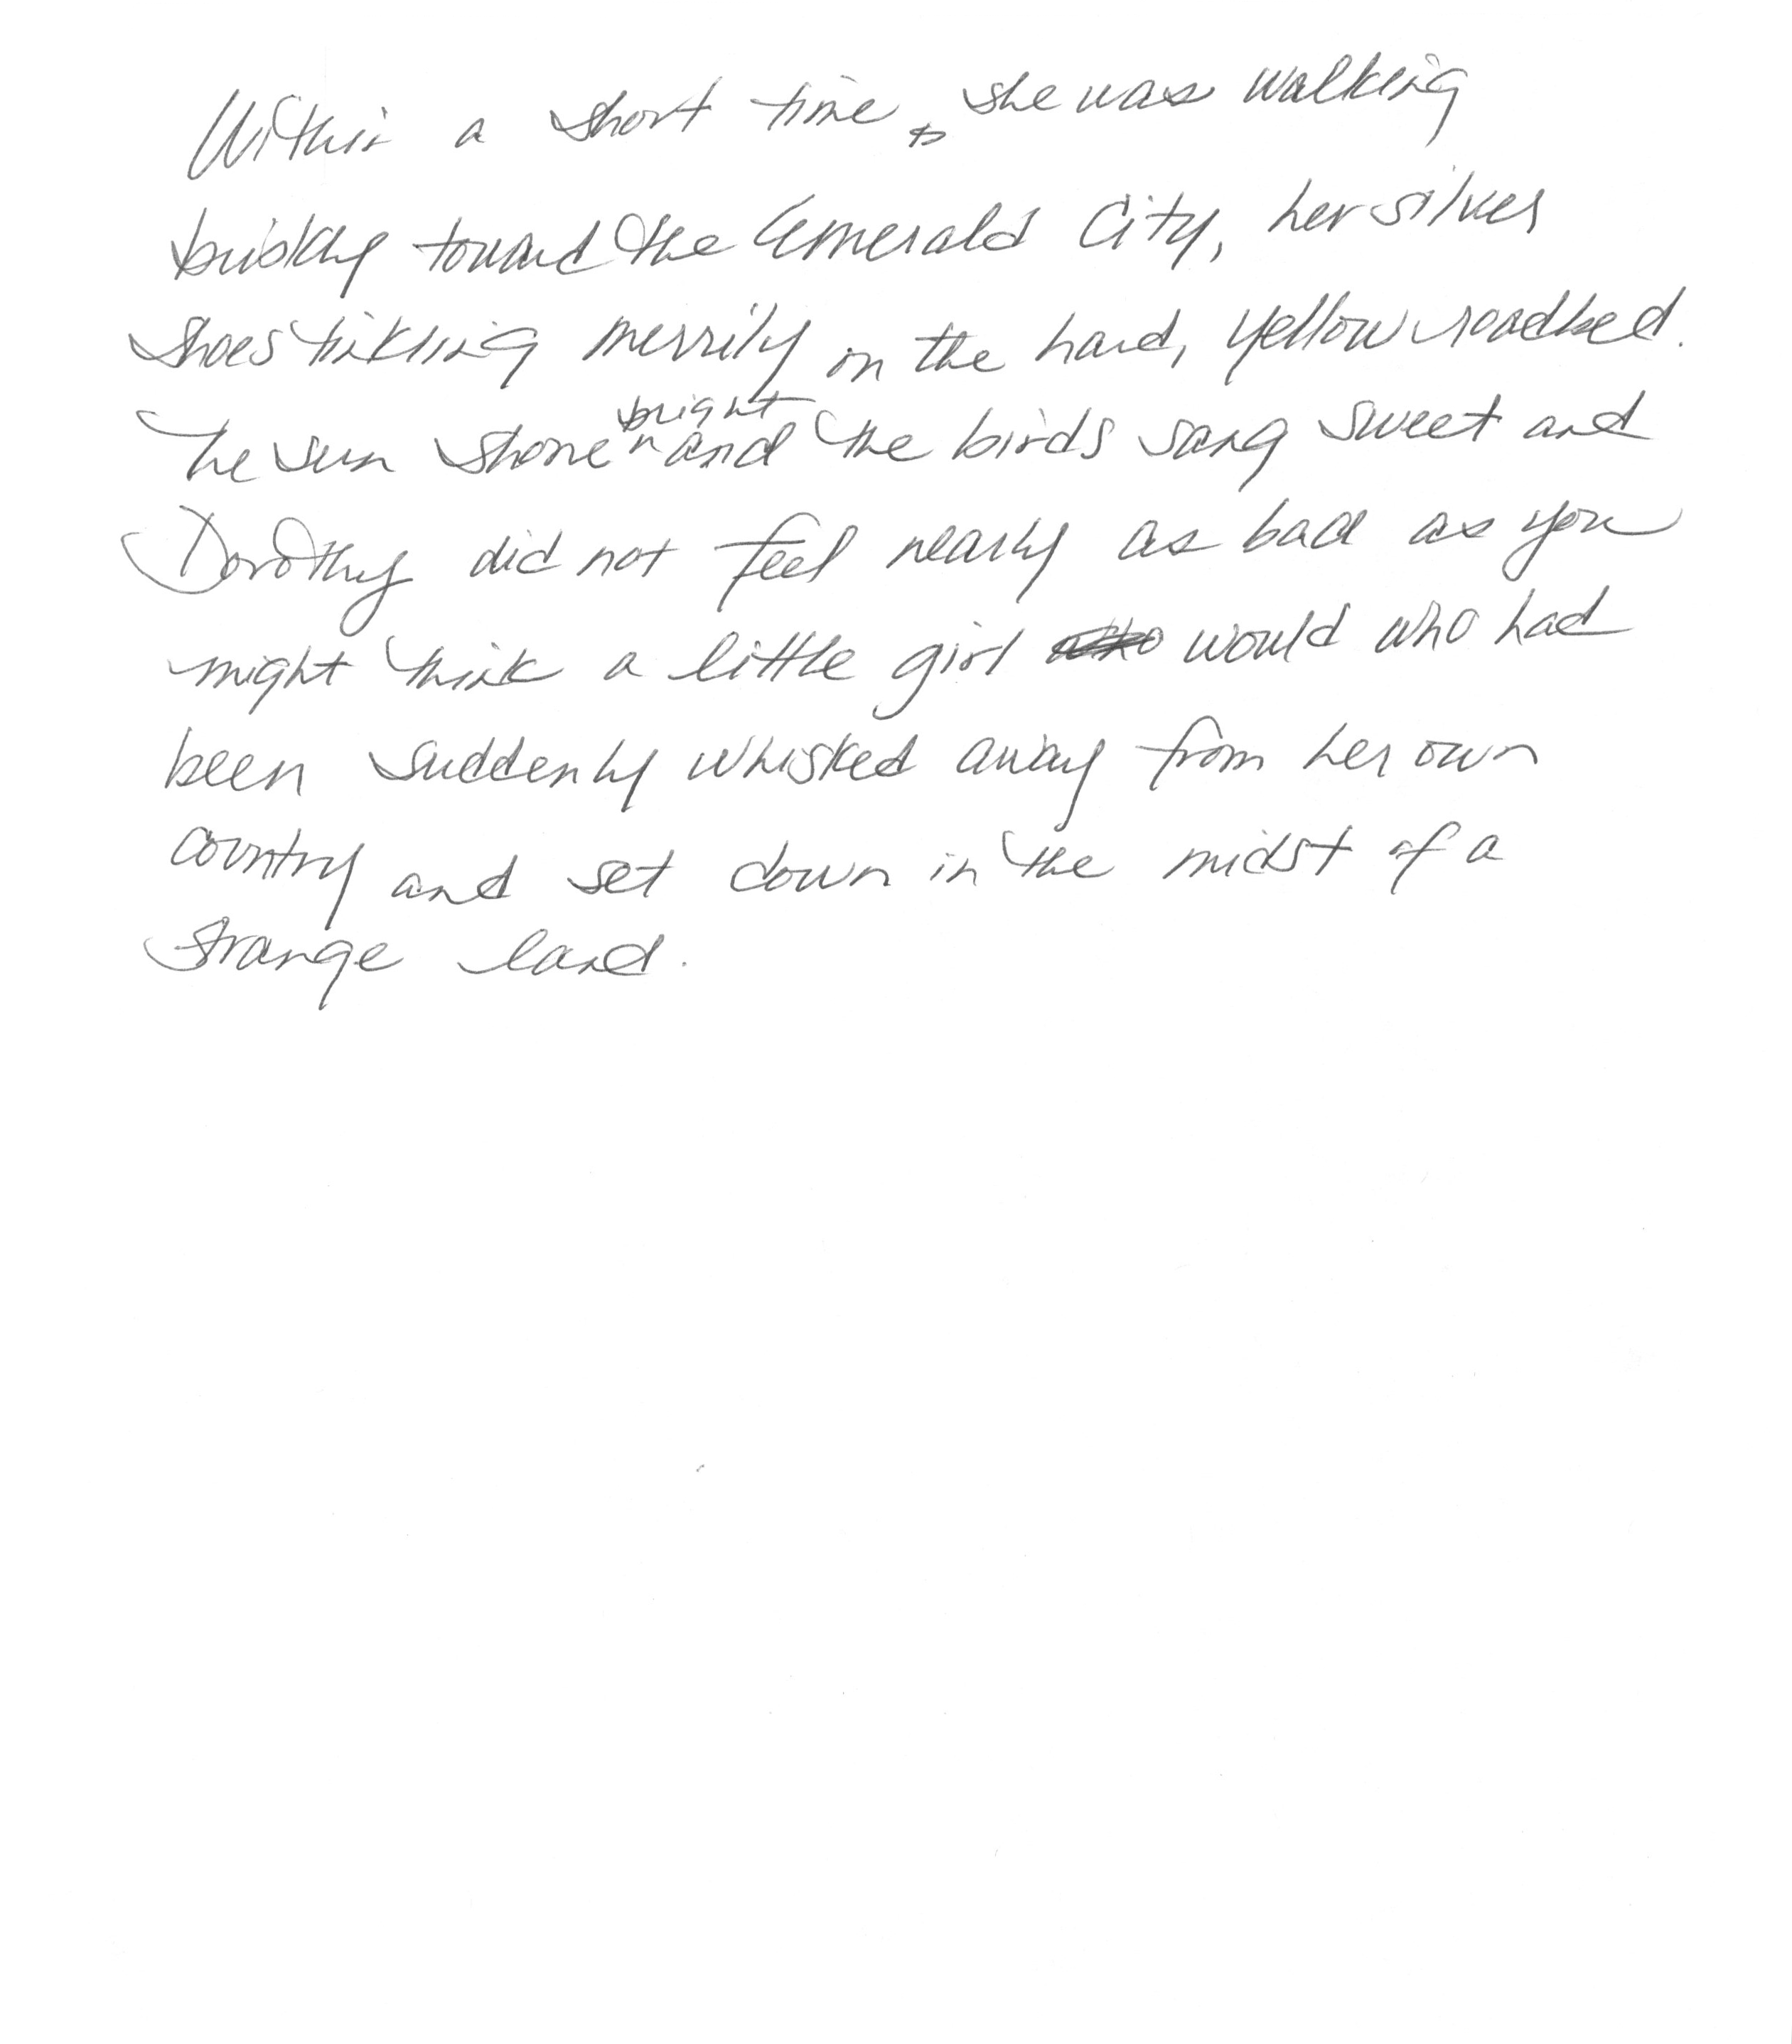 Within a short time, she was walking
briskly toward the Emerald City, her silver
shoes tinkling merrily on the hard, yellow roadbed.
The sun shone bright and the birds sang sweet and
Dorothy did not feel nearly as bad as you
might think a little girl would who had
been suddenly whisked away from her own
country and set down in the midst of a
strange land.